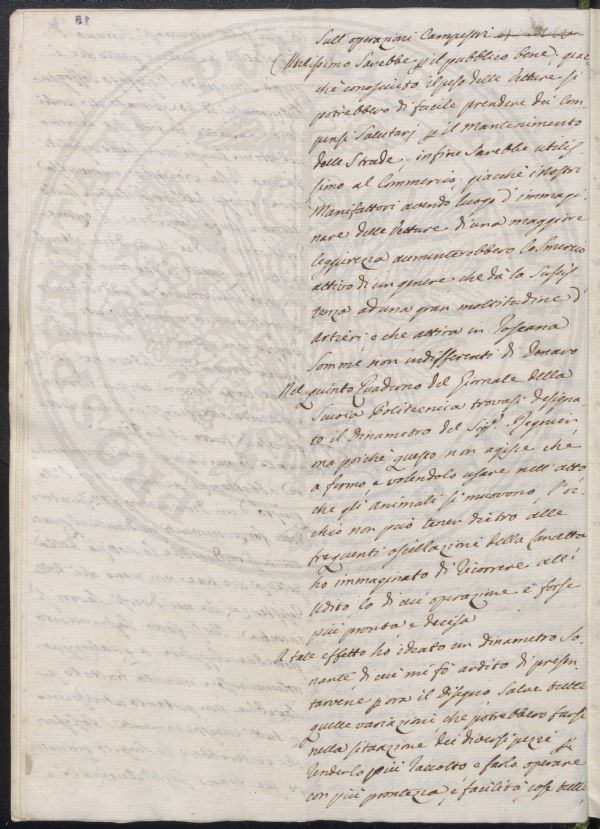 15
Sull'operazioni Campestri
Utilissimo Sarebbe p il pubblico bene, giac
chè conosciuto il peso delle Vetture si
potrebbero di facile prendere dei Com
pensi Salutarj p il Mantenimento
delle Strade, infine Sarebbe utilis
simo al Commercio, giacchè i nostri
Manifattori avendo luogo d'immagi
nare delle Vetture di una maggiore
leggierezza aumenterebbero lo Smercio
attivo di un genere che dà la Sussis
tenza ad una gran moltitudine d'
Artieri, e che attira in Toscana
Somme non indifferenti di Denaro
Nel quinto Quaderno del Giornale della
Scuola Politecnica trovasi designa
to il dinametro del Sigr. Regnier,
ma poichè questo non agisce che
a fermo, e volendolo usare nell'atto
che gli animali si muovono, l'oc
chio non può tener dietro alle
frequenti oscillazioni della Lancetta
ho immaginato di ricorrere all'
Udito la di cui operazione è forse
più pronta e decisa
A tale effetto hò ideato un dinametro So
nante, di cui mi fò ardito di presen
tarvene p ora il disegno Salve tutte
quelle variazioni che potrebbero farse
nella situazione dei diversi pezzi p
renderlo più raccolto e farlo operare
con più prontezza, e facilità, cose tutte